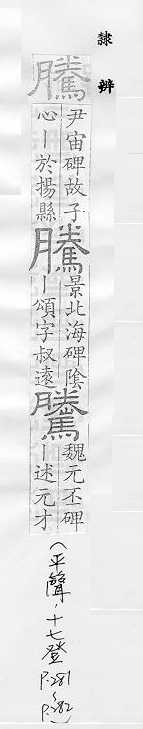 隸辨
騰
尹宙碑故子
心丨於揚縣
騰
景北海碑陰
丨頌字叔遠
騰
魏元丕碑
丨述元才
（平聲，十七登 P.281~P.282）